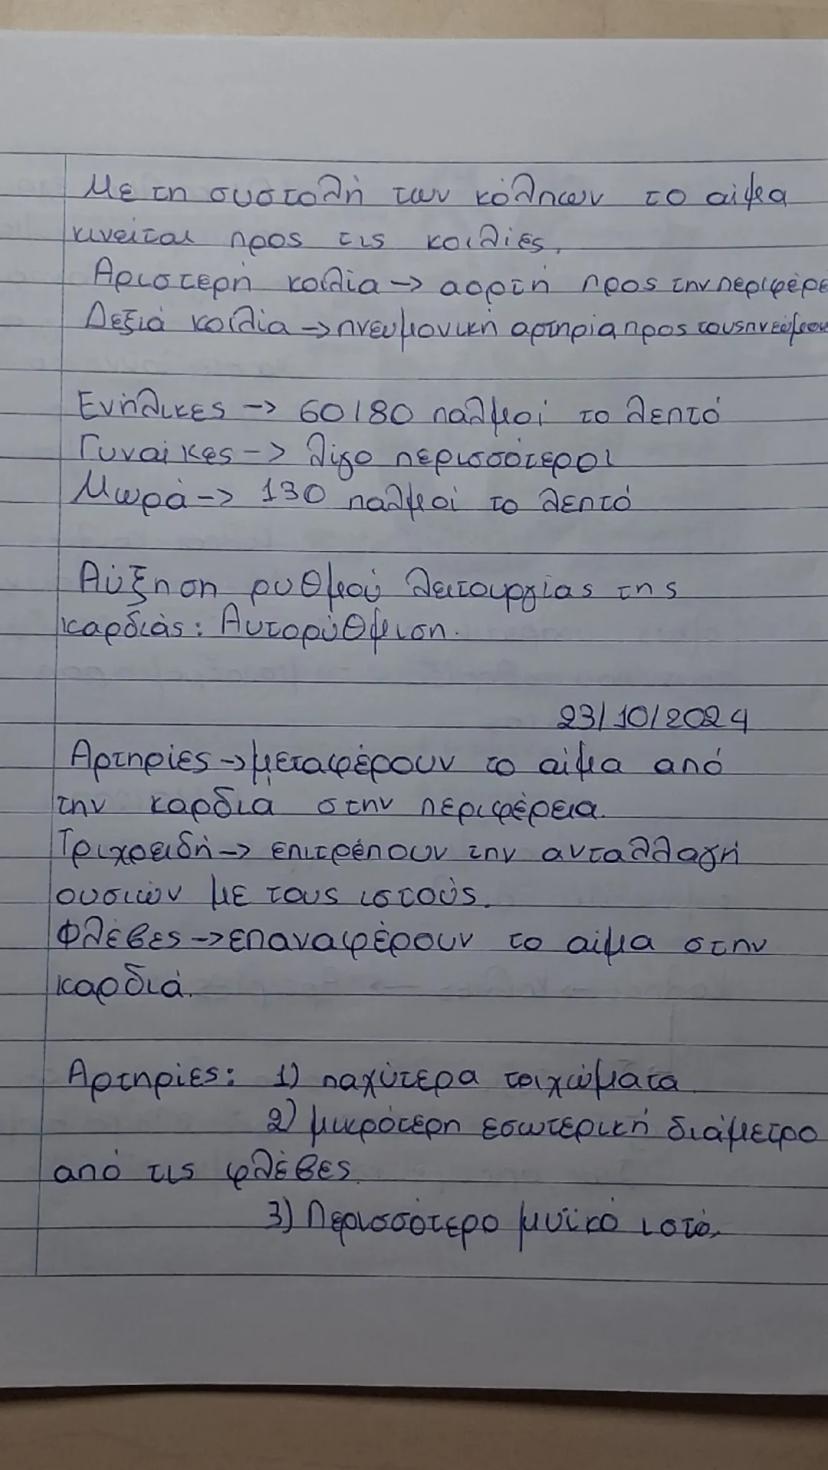 Με τη συστολή των κόλπων το αίμα
κινείται προς τις κοιλίες.
Αριστερή κοιλία → αορτή προς την περιφέρε
Δεξιά κοιλία → πνευμονική αρτηρία προς τους πνεύμον
Ενήλικες → 60/80 παλμοί το λεπτό
Γυναίκες → λίγο περισσότεροι
Μωρά → 130 παλμοί το λεπτό
Αύξηση ρυθμού λειτουργίας της
καρδιάς: Αυτορύθμιση.
23/10/2024
Αρτηρίες → μεταφέρουν το αίμα από
την καρδιά στην περιφέρεια.
Τριχοειδή → επιτρέπουν την ανταλλαγή
ουσιών με τους ιστούς.
Φλέβες → επαναφέρουν το αίμα στην
καρδιά.
Αρτηρίες: 1) παχύτερα τοιχώματα
2) μικρότερη εσωτερική διάμετρο
από τις φλέβες.
3) Περισσότερο μυϊκό ιστό.